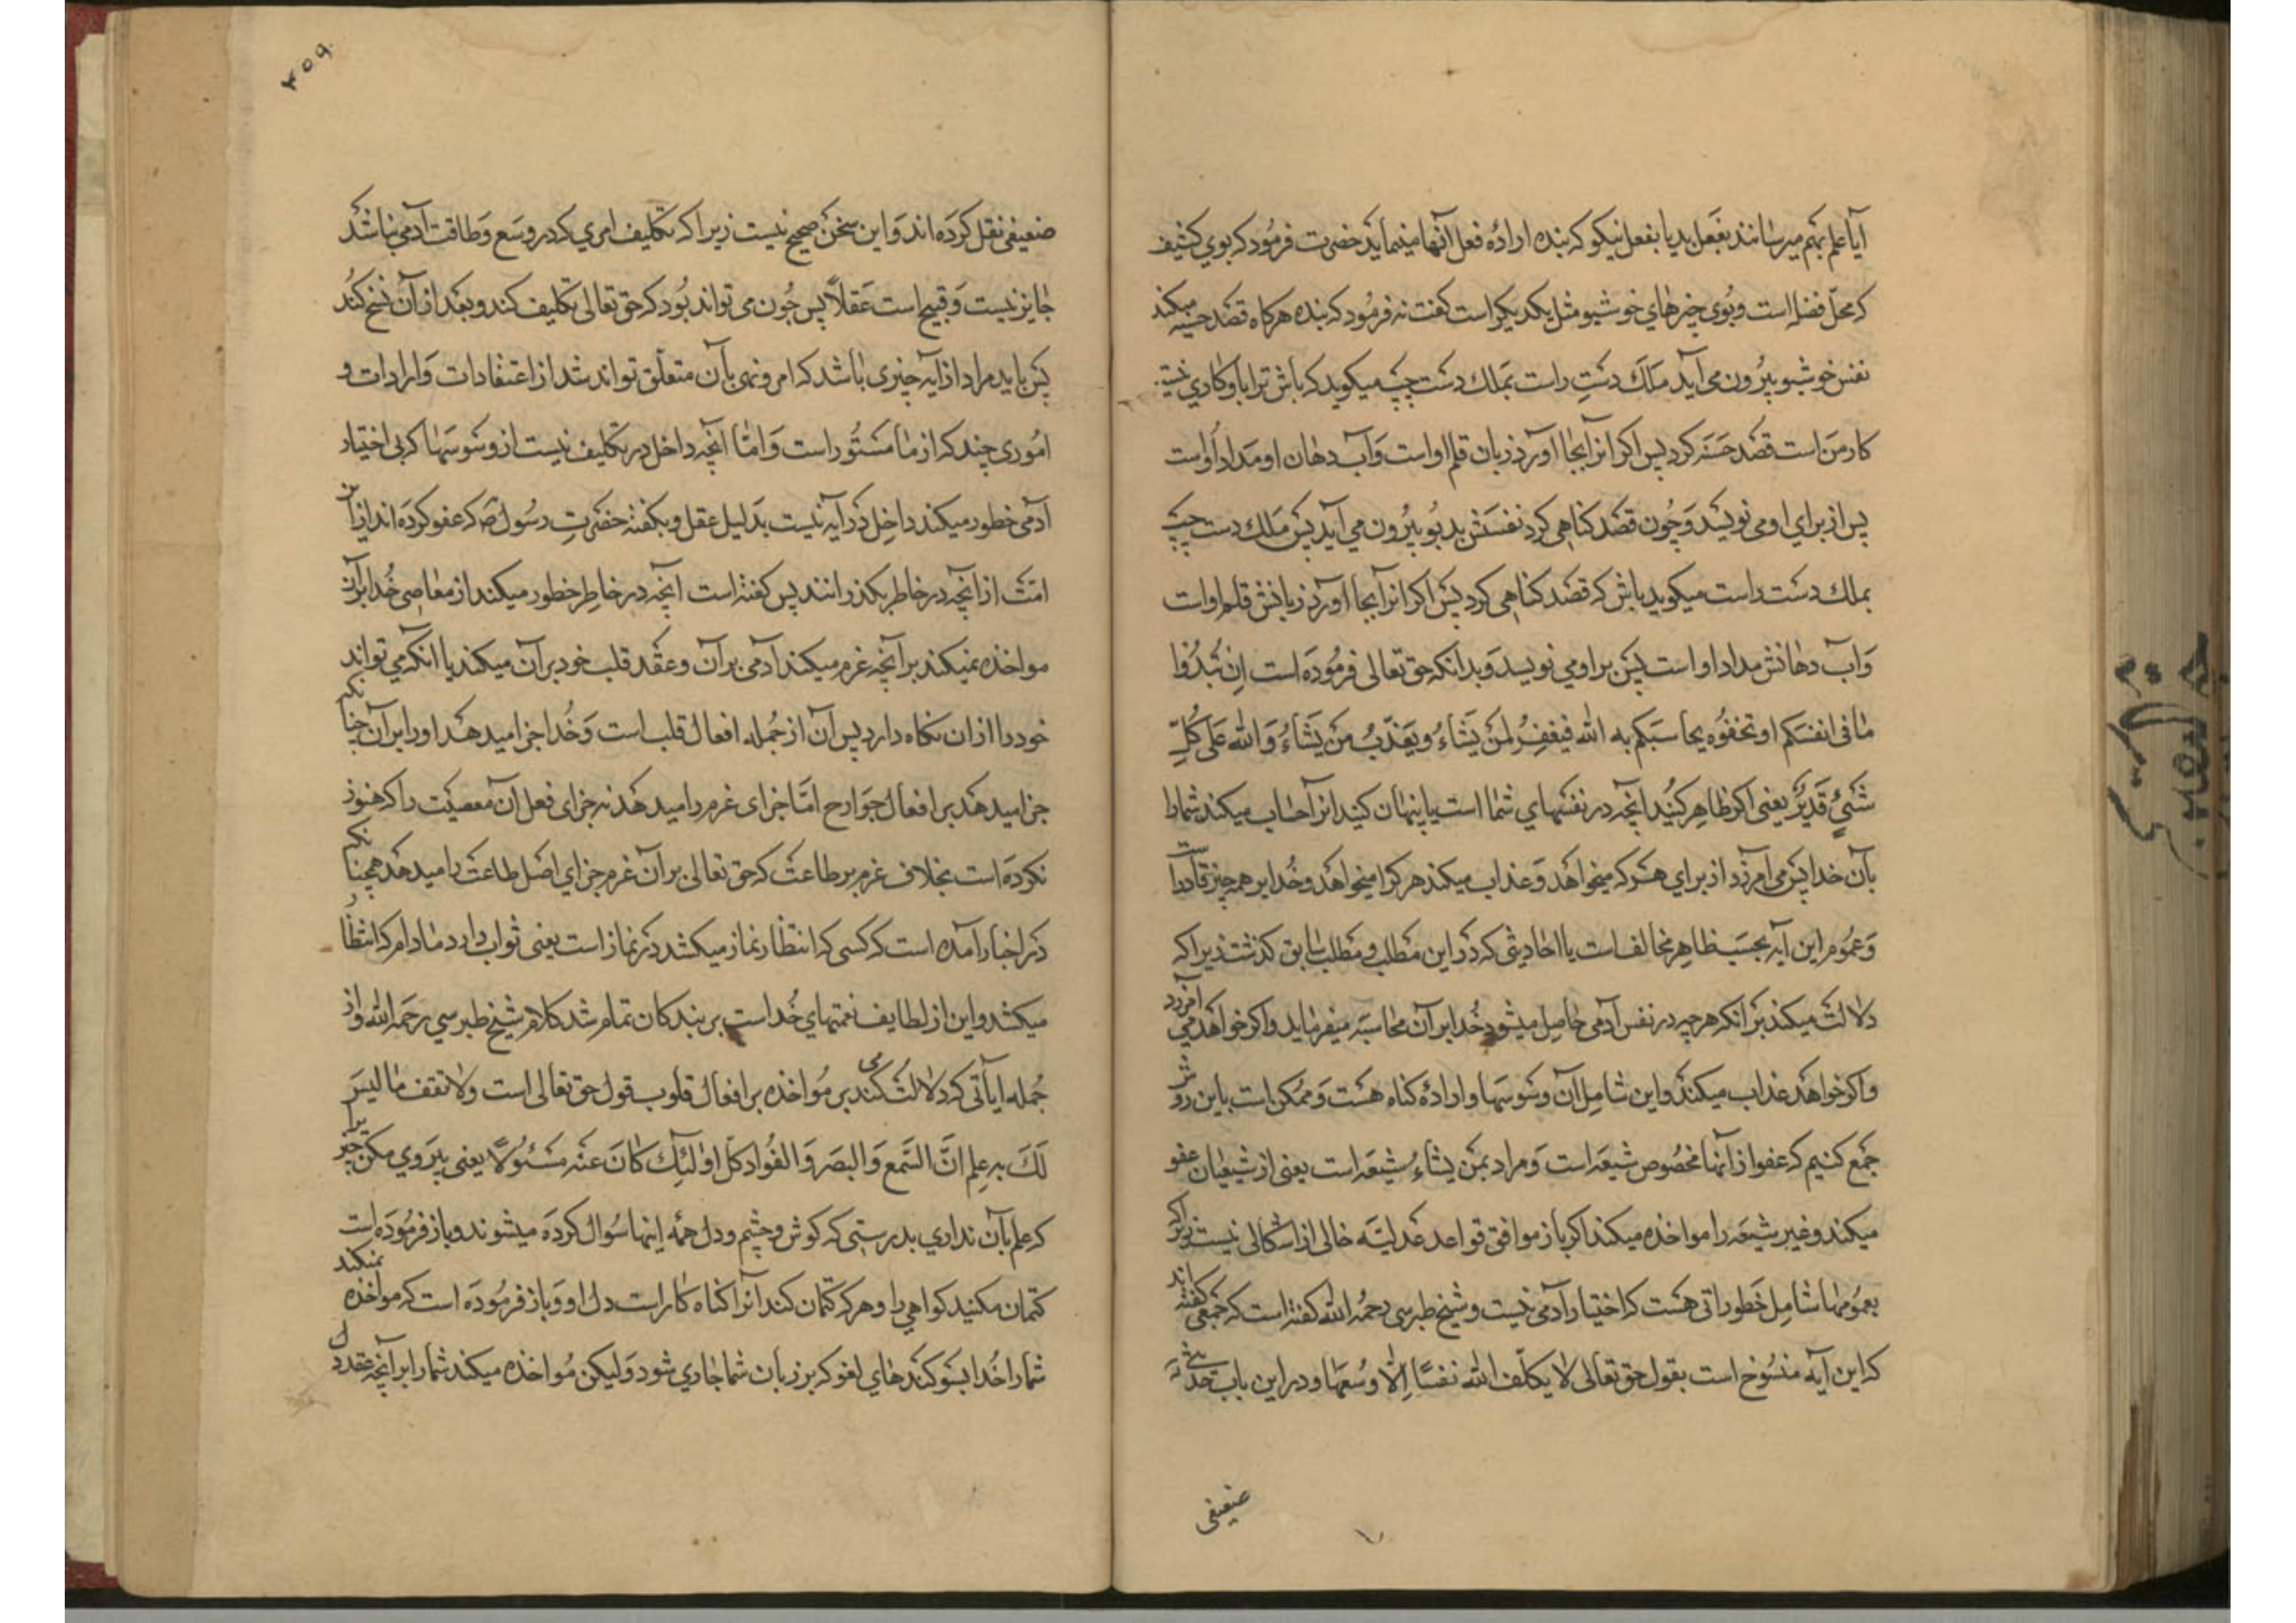 آیا علم بهم میرسانند بفعل بد یا بفعل نیکو که بنده ارادهٔ فعل آنها مینماید حضرت فرمود که بوی کنیف
که محل فضله است و بوی چیزهای خوشبو مثل یکدیگر است گفت نه فرمود که بنده هرگاه قصد حسنه میکند
نفس خوشبو بیرون می آید ملک دست راست بملک دست چپ میگوید که باش ترا باو کاری نیست
کار من است قصد حسنه کرد پس اگر انرا بجا آورد زبان قلم او است و آب دهان او مداد اوست
پس از برای او می نویسد و چون قصد گناهی کرد نفسش بد بو بیرون می آید پس ملک دست چپ
بملک دست راست میگوید باش که قصد گناهی کرد پس اگر انرا بجا آورد زبانش قلم او است
و آب دهانش مداد او است پس بر او می نویسد و بدانکه حق تعالی فرموده است اِن تُبدُوا
مٰا فی انفسکم او تخفوه یحاسبکم به اللّه فیغفر لمن یشاء و یعذّب من یشاء و اللّه علی کلّ
شیءٍ قدیرٌ یعنی اگر ظاهر کنید انچه در نفسهای شما است یا پنهان کنید انرا حساب میکند شما را
بآن خدا پس می آمرزد از برای هر که میخواهد و عذاب میکند هر کرا میخواهد و خدا بر همه چیز قادر است
و عموم این آیه بحسب ظاهر مخالف است یا احادیثی که در این مطلب و مطلب سابق گذشت زیرا که
دلالت میکند بر انکه هر چه در نفس آدمی حاصل میشود خدا بر آن محاسبه میفرماید و اگر خواهد می آمرزد
و اگر خواهد عذاب میکند و این شامل آن وسوسها و ارادهٔ گناه هست و ممکن است باین روش
جمع کنیم که عفو از آنها مخصوص شیعه است و مراد بمن یشاء شیعه است یعنی از شیعیان عفو
میکند و غیر شیعه را مواخذه میکند اگر باز موافق قواعد عدلیّه خالی از اشکالی نیست زیرا که
بعمومها شامل خطوراتی هست که اختیار آدمی نیست و شیخ طبرسی رحمه اللّه گفته است که جمعی گفته اند
که این آیه منسوخ است بقول حق تعالی لا یکلّف اللّه نفسًا اِلّا وسعها و در این باب حدیث
ضعیفی
۴۵۹
ضعیفی نقل کرده اند و این سخن صحیح نیست زیرا که تکلیف امری که در وسع و طاقت آدمی نباشد
جایز نیست و قبیح است عقلاً پس چون می تواند بود که حق تعالی تکلیف کند و بعد از آن نسخ کند
پس باید مراد از آیه چیزی باشد که امر و نهی بآن متعلّق تواند شد از اعتقادات و ارادات و
اموری چند که از ما مستور است و امّا آنچه داخل در تکلیف نیست از وسوسها که بی اختیار
آدمی خطور میکند داخل در آیه نیست بدلیل عقل و بگفته حضرت رسول ص که عفو کرده اند از این
امّت از آنچه در خاطر بگذرانند پس گفته است آنچه در خاطر خطور میکند از معاصی خدا بر آن
مواخذه نمیکند بر آنچه عزم میکند آدمی بر آن و عقد قلب خود بر آن میکند یا انکه می تواند
خود را از ان نگاه دارد پس آن از جمله افعال قلب است و خدا جزا میدهد او را بر آن چنانکه
جزا میدهد بر افعال جوارح امّا جزای عزم را میدهد نه جزای فعل آن معصیت را که هنوز
نکرده است بخلاف عزم بر طاعت که حق تعالی بر آن عزم جزای اصل طاعت را میدهد همچنانکه
در اخبار آمده است که کسی که انتظار نماز میکشد در نماز است یعنی ثواب دارد مادام که انتظار
میکشد و این از لطایف نعمتهای خدا است بر بندکان تمام شد کلام شیخ طبرسی رحمه اللّه و از
جمله ایاتی که دلالت می کند بر مواخذه بر افعال قلوب قول حق تعالی است ولا تقف ما لیس
لَکَ بهِ عِلم انَّ السَّمع وَ البصَر وَ الفُواد کلّ اولٰئِک کانَ عنه مسئولًا یعنی پیروی مکن چیزیرا
که علم بآن نداری بدرستی که گوش و چشم و دل همه اینها سوال کرده میشوند و باز فرموده است
کتمان مکنید گواهی را و هر که کتمان کند آنرا گناه کار است دل او و باز فرموده است که مواخذه نمیکند
شما را خدا بسوگندهای لغو که بر زبان شما جاری شود ولیکن مواخذه میکند شما را بر آنچه عقد دل